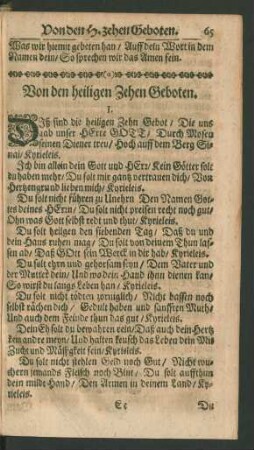 Von den H. zehen Geboten. 65
Was wir hiemit gebeten han / Auff dein Wort in dem
Namen dein / So sprechen wir das Amen fein.
Von den heiligen Zehen Geboten.
I.
Diß sind die heiligen Zehn Gebot / Die uns
gab unser HErre GOTT / Durch Mosen
seinen Diener treu / Hoch auff dem Berg Si-
nai / Kyrieleis.
Ich bin allein dein Gott und HErr / Kein Götter solt
du haben mehr / Du solt mir gantz vertrauen dich / Von
Hertzengrund lieben mich / Kyrieleis.
Du solt nicht führen zu Unehrn Den Namen Got-
tes deines HErrn / Du solt nicht preisen recht noch gut /
Ohn was Gott selbst redt und thut / Kyrieleis.
Du solt heilgen den siebenden Tag / Daß du und
dein Hauß ruhen mag / Du solt von deinem Thun las-
sen ab / Daß GOtt sein Werck in dir hab / Kyrieleis.
Du solt ehrn und gehorsam seyn / Dem Vater und
der Mutter dein / Und wo dein Hand ihnen dienen kan /
So wirst du langs Leben han / Kyrieleis.
Du solt nicht tödten zorniglich / Nicht hassen noch
selbst rächen dich / Gedult haben und sanfften Muth /
Und auch dem Feinde thun das gut / Kyrieleis.
Dein Eh solt du bewahren rein / Daß auch dein Hertz
kein andre meyn / Und halten keusch das Leben dein Mit
Zucht und Mässigkeit fein / Kyrieleis.
Du solt nicht stehlen Geld noch Gut / Nicht wu-
chern jemands Fleisch noch Blut / Du solt auffthun
dein milde Hand / Den Armen in deinem Land / Ky-
rieleis.
Du